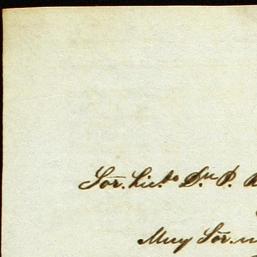 Sor. Lic.do Dn. P.
Muy Sor. m